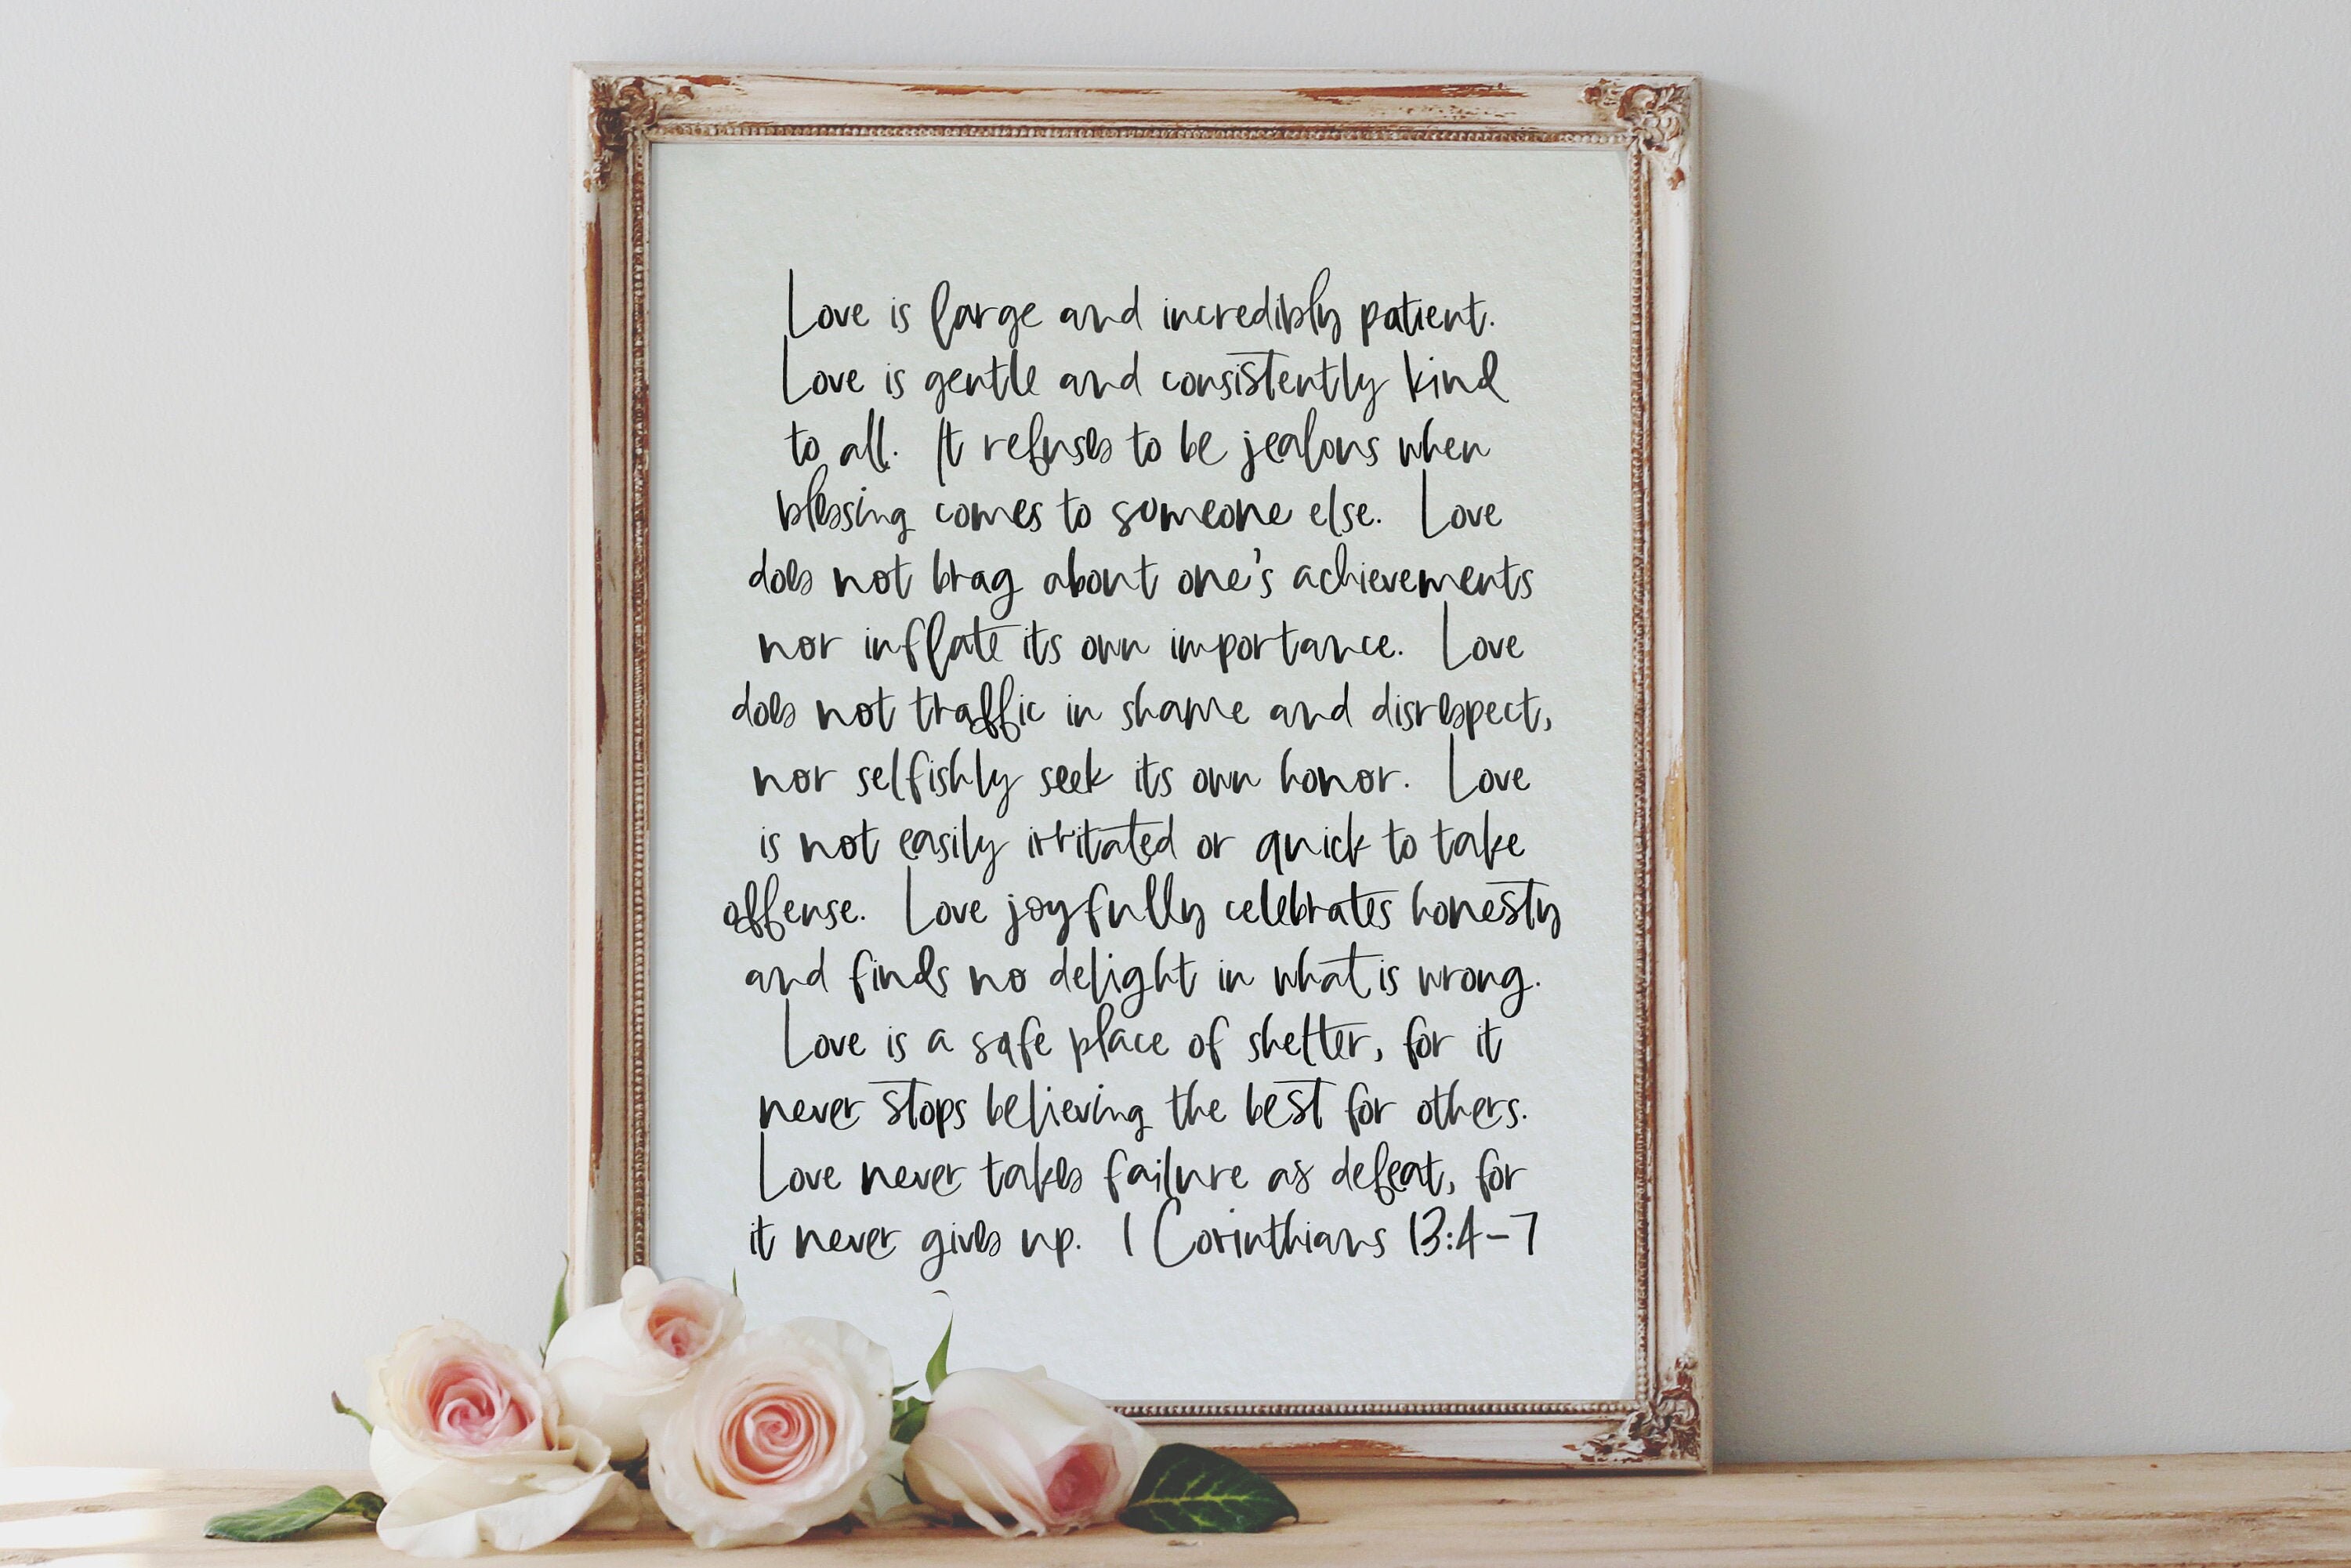 Love is large and incredibly patient.
Love is gentle and consistently kind
to all. It refuses to be jealous when
blessing comes to someone else. Love
does not brag about one's achievements
nor inflate its own importance. Love
does not traffic in shame and disrespect,
nor selfishly seek its own honor. Love
is not easily irritated or quick to take
offense. Love joyfully celebrates honesty
and finds no delight in what is wrong.
Love is a safe place of shelter, for it
never stops believing the best for others.
Love never takes failure as defeat, for
it never gives up. 1 Corinthians 13:4-7